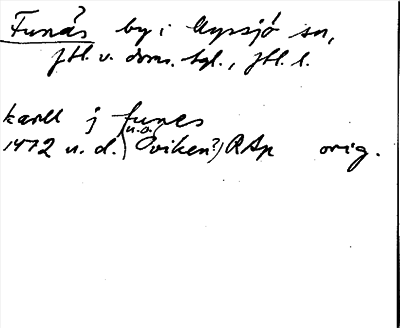 Funås by i Myssjö sn,
Jtl. v. doms. tgl., Jtl. l.
karll j funes
1472 u. d. (u.o. Oviken?) RAp orig.